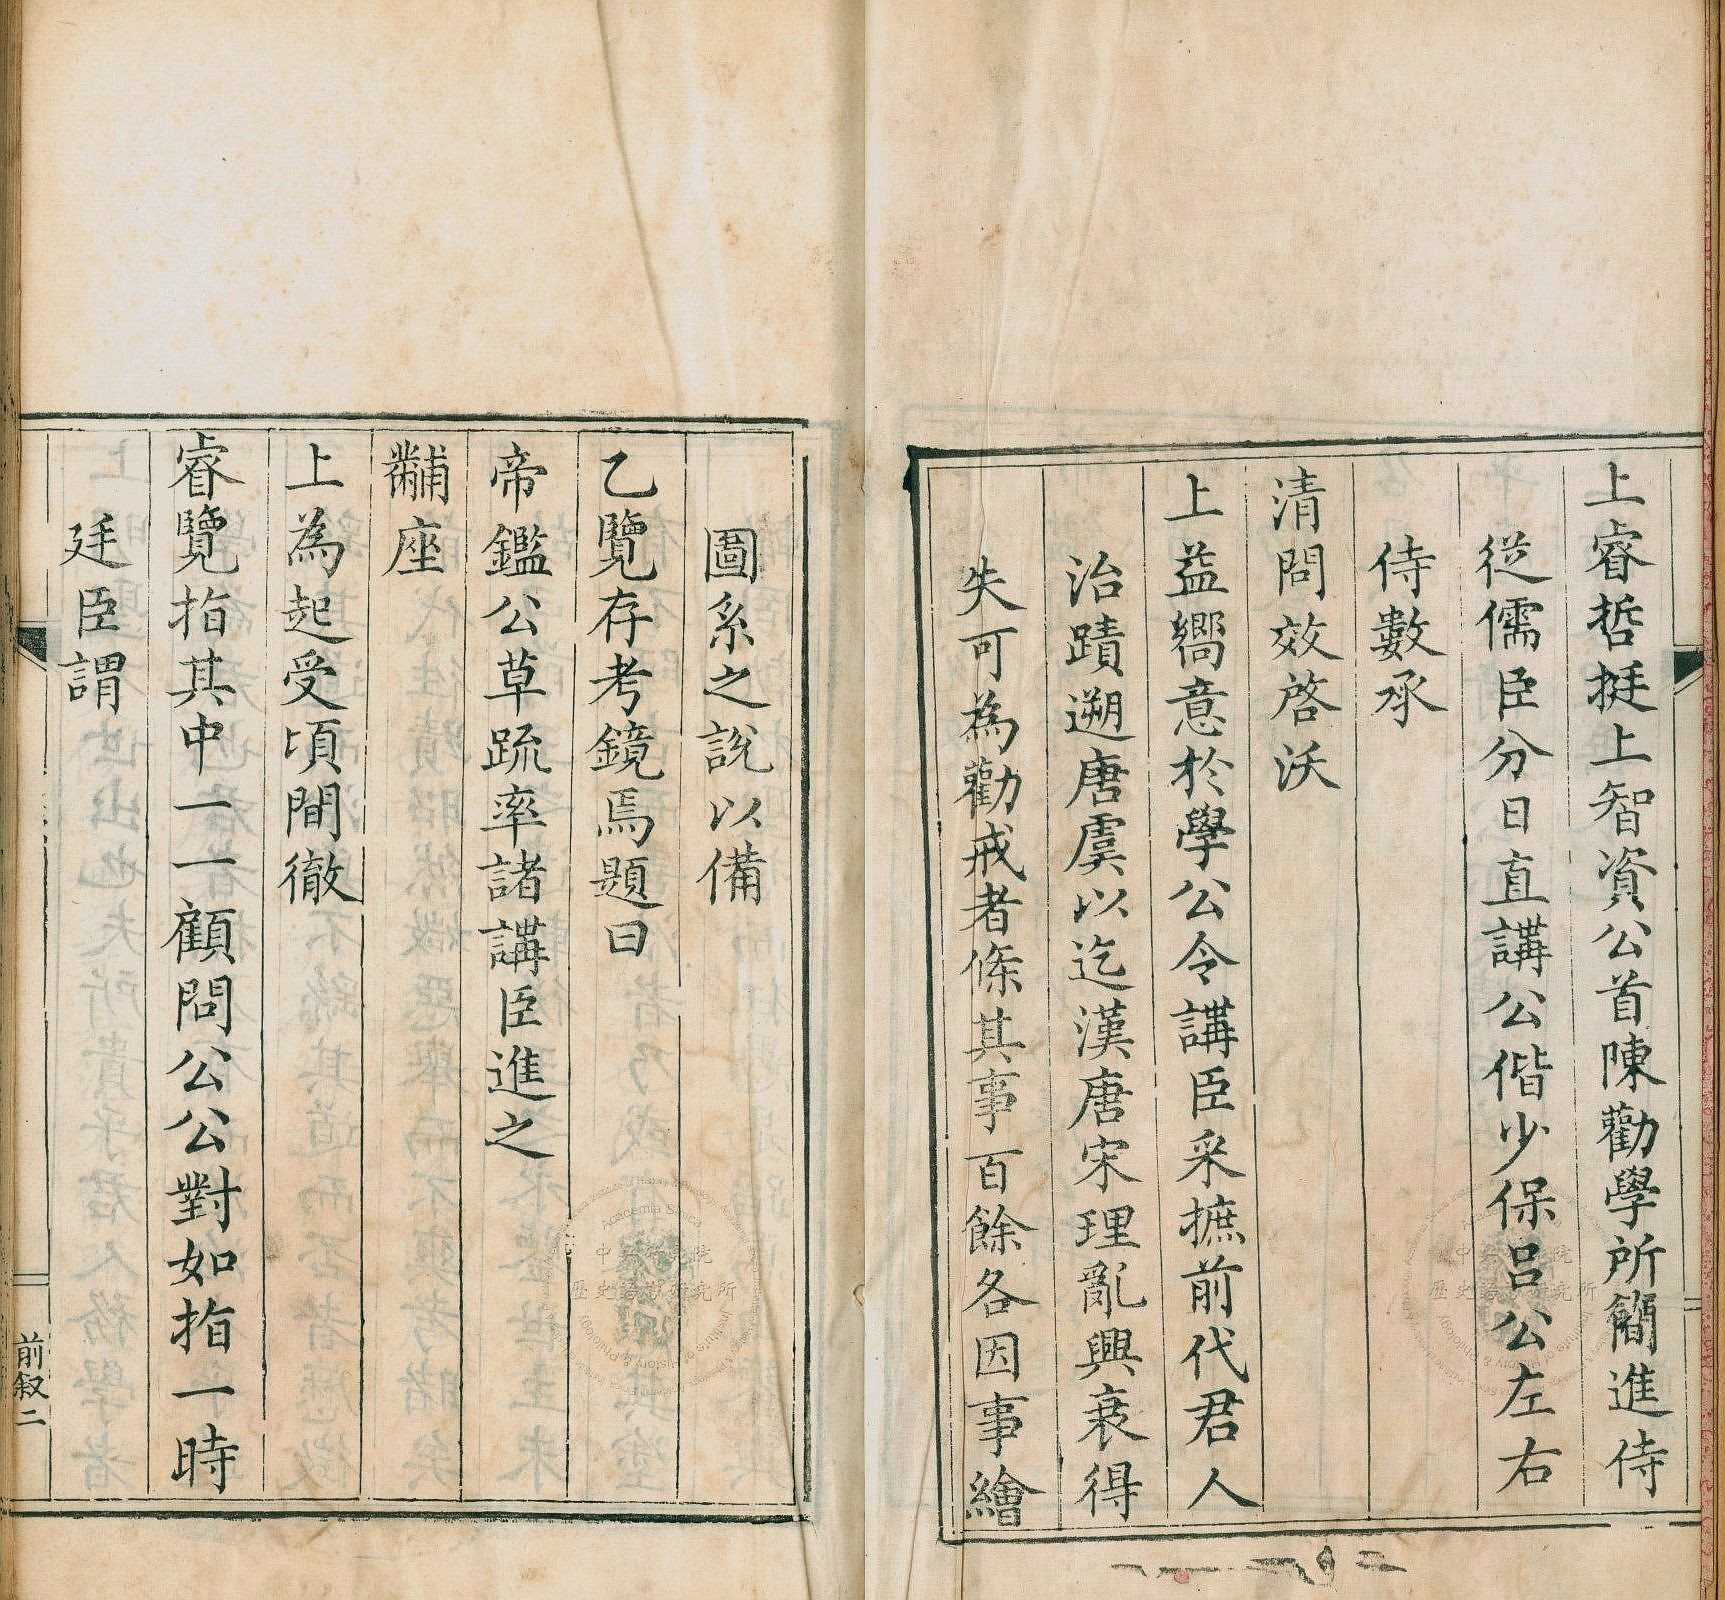 上睿哲挺上智資公首陳勸學所簡進侍
從儒臣分日直講公偕少保呂公左右
侍數承
清問效啓沃
上益嚮意於學公令講臣采摭前代君人
治蹟遡唐虞以迄漢唐宋理亂興衰得
失可為勸戒者條其事百餘各因事繪
圖系之說以備
乙覽存考鏡焉題曰
帝鑑公草疏率諸講臣進之
黼座
上為起受頃間徹
睿覽指其中一一顧問公公對如指一時
廷臣謂
前叙二
中央研究院
歷史語言研究所
Academia Sinica